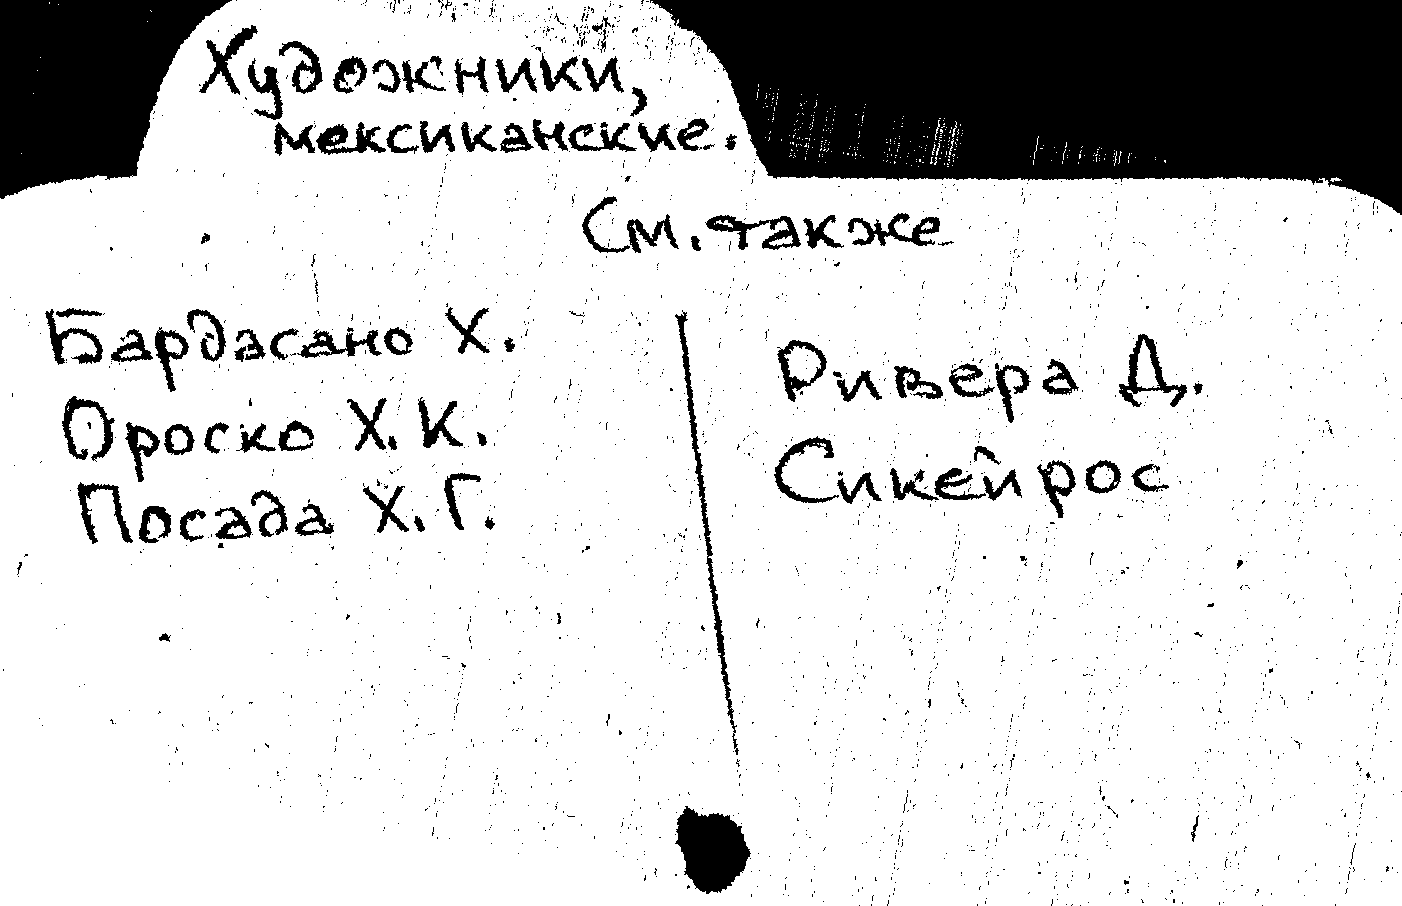 Художники,
мексиканские.
См. также
Бардасано Х.
Ороско Х. К.
Посада Х. Г.
Ривера Д.
Сикейрос